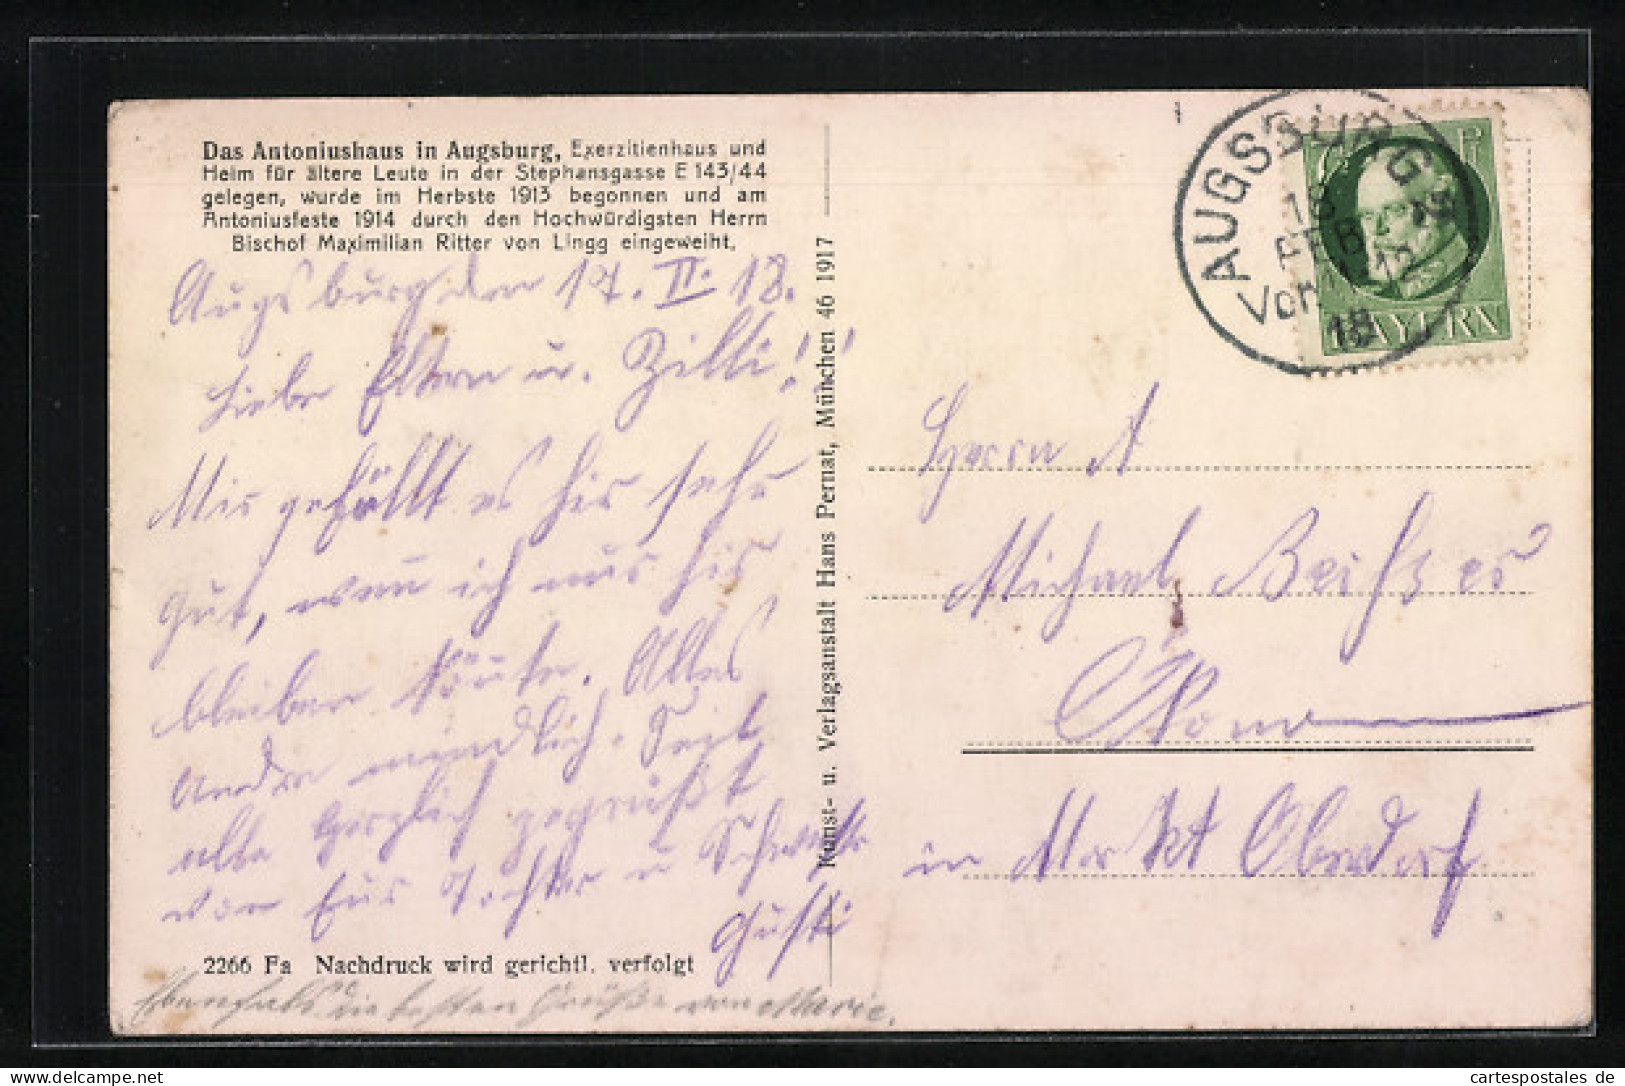 Das Antoniushaus in Augsburg, Exerzitienhaus und
Heim für ältere Leute in der Stephansgasse E 143/44
gelegen, wurde im Herbste 1913 begonnen und am
Antoniusfeste 1914 durch den Hochwürdigsten Herrn
Bischof Maximilian Ritter von Lingg eingeweiht.
Augsburg den 17. II. 18.
Liebe Eltern u. Zilli!!
Mir gefällt es hir sehr
gut, wen ich nur hir
bleiben könnte. Alles
Andre mündlich. Seit
alle herzlich gegrüßt
von Eur Tochter u Schwester
Gusti
2266 Fa Nachdruck wird gerichtl. verfolgt
Ebenfals die besten Grüße von Marie.
Kunst- u. Verlagsanstalt Hans Pernat, München 46 1917
AUGSBURG 2
18
FEB
Vor
18
BAYERN
Herrn
Michael
in Markt Oberdorf